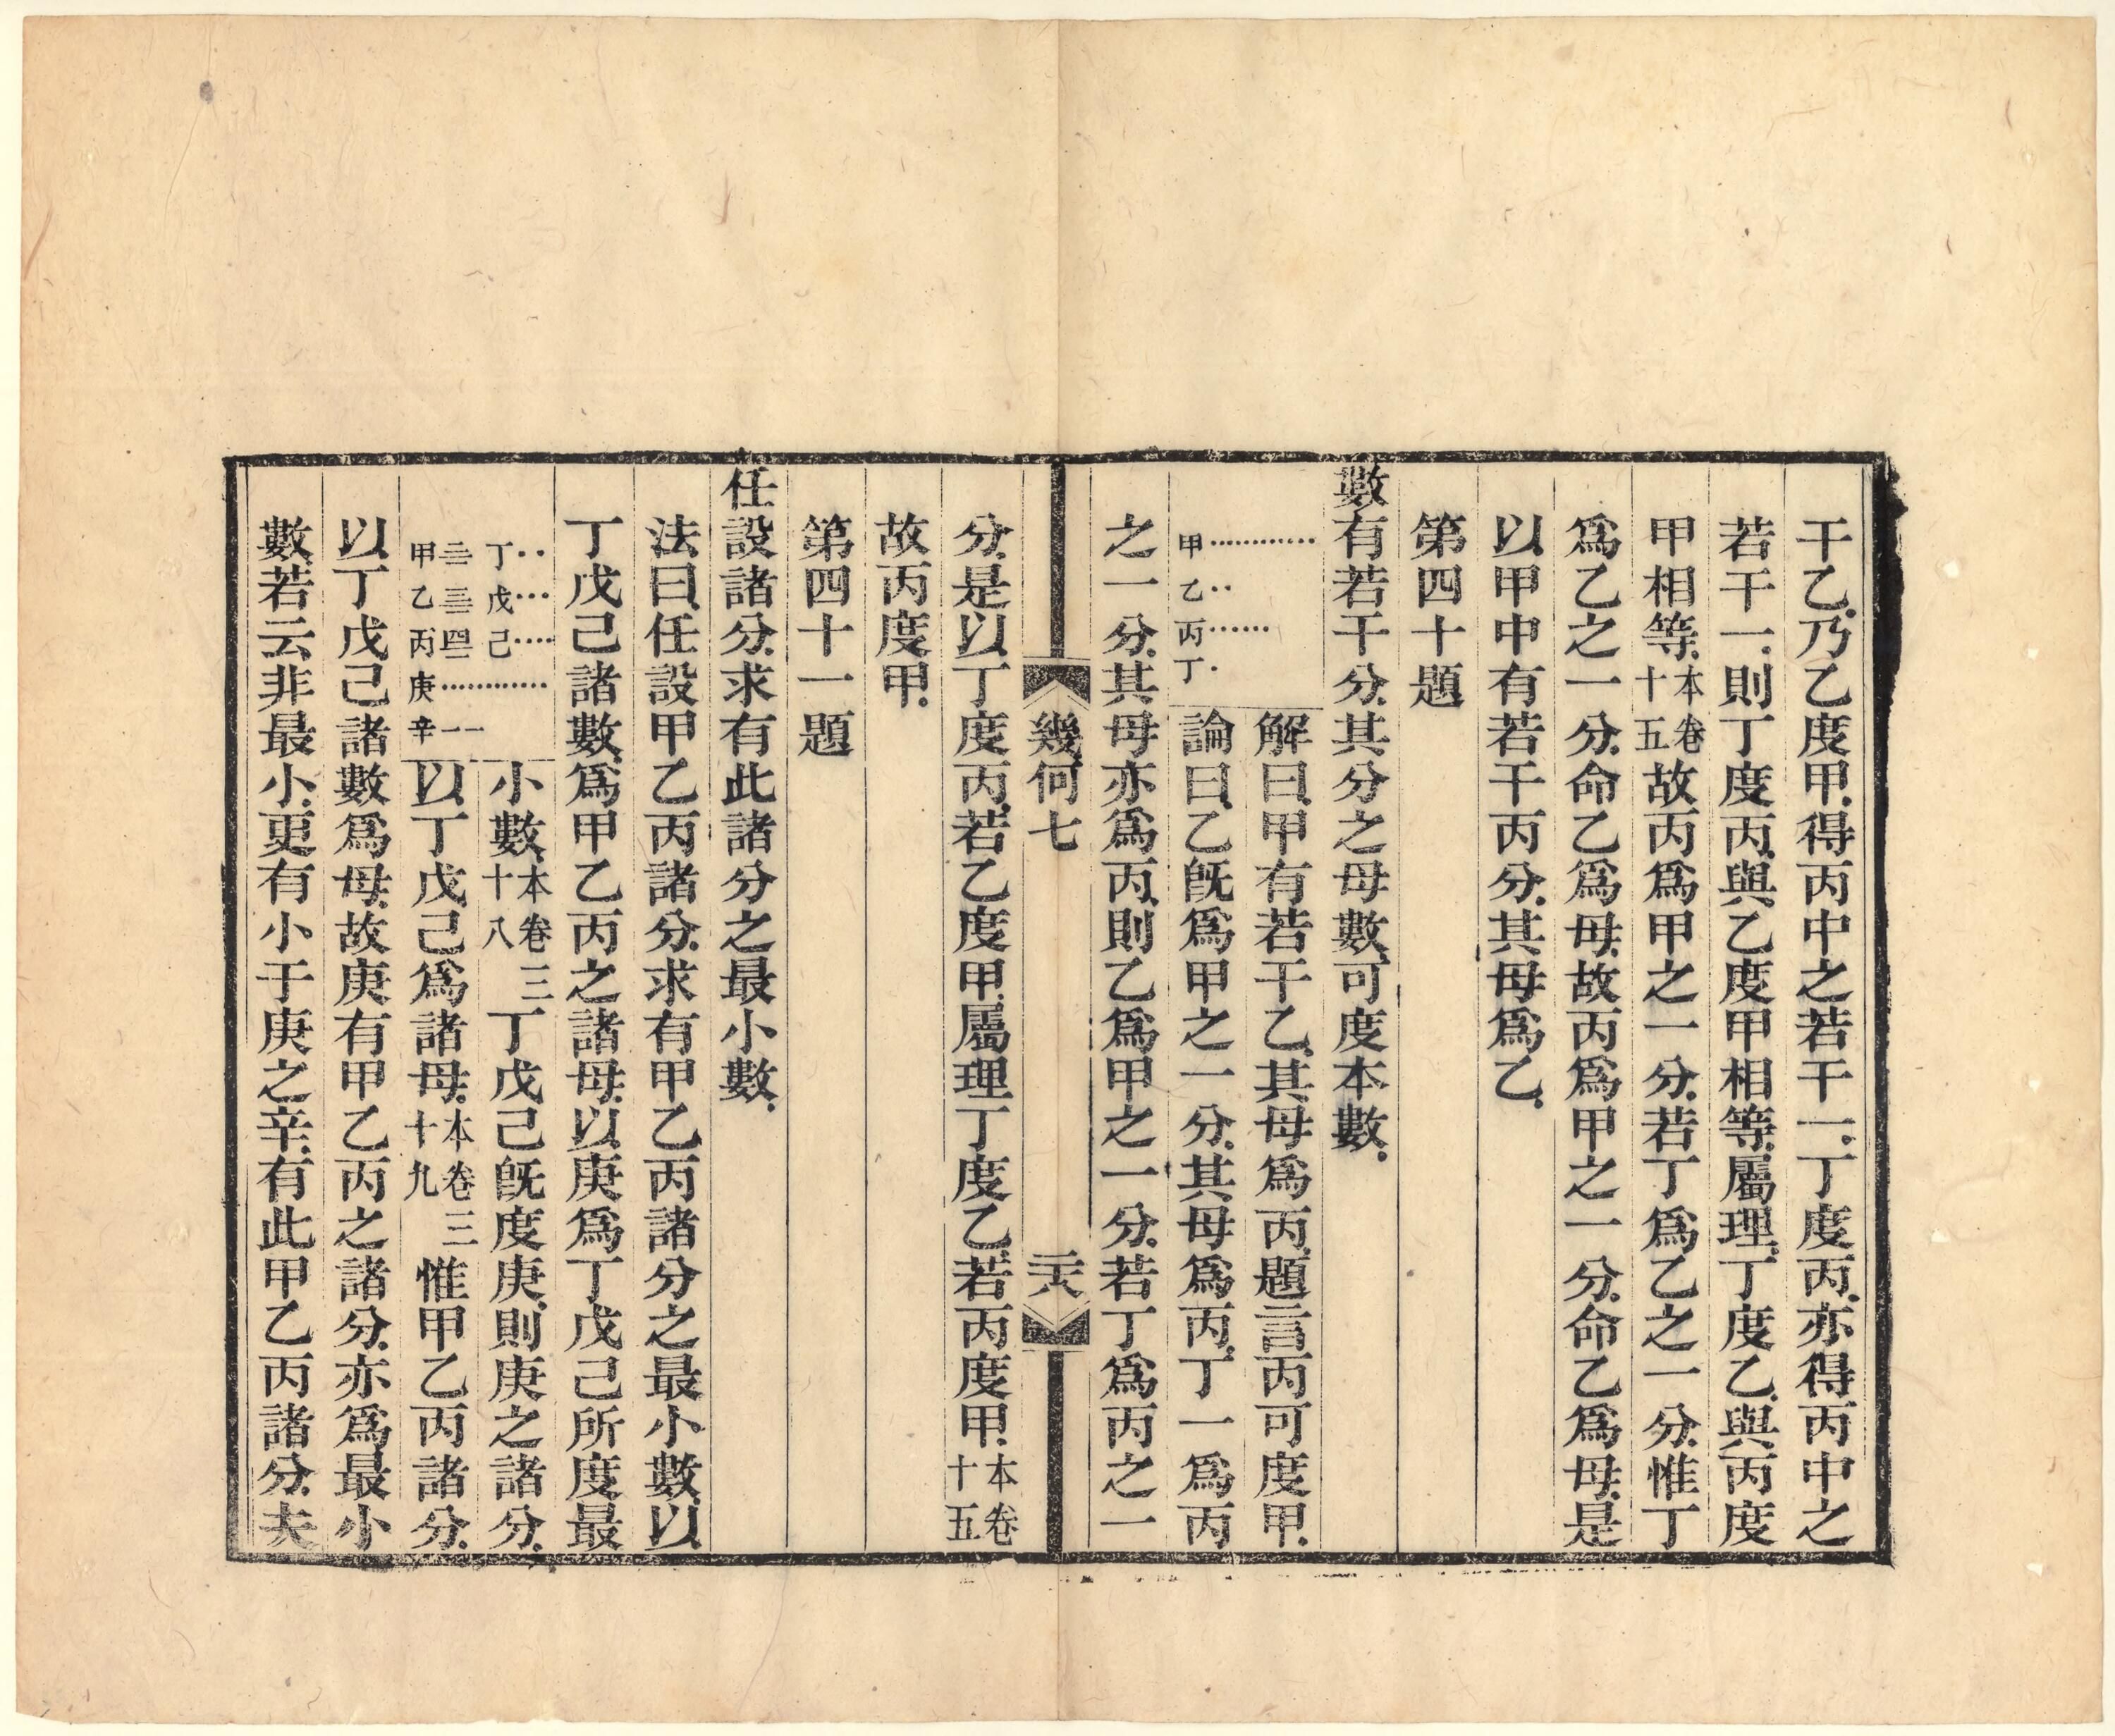 干乙乃乙度甲得丙中之若干一丁度丙亦得丙中之
若干一則丁度丙與乙度甲相等屬理丁度乙與丙度
甲相等本卷十五故丙爲甲之一分若丁爲乙之一分惟丁
爲乙之一分命乙爲母故丙爲甲之一分命乙爲母是
以甲中有若干丙分其母爲乙
第四十題
數有若干分其分之母數可度本數
甲
乙
丙
丁
解曰甲有若干乙其母爲丙題言丙可度甲
論曰乙旣爲甲之一分其母爲丙丁一爲丙
之一分其母亦爲丙則乙爲甲之一分若丁爲丙之一
幾何七
二六
分是以丁度丙若乙度甲屬理丁度乙若丙度甲本卷十五
故丙度甲
第四十一題
任設諸分求有此諸分之最小數
法曰任設甲乙丙諸分求有甲乙丙諸分之最小數以
丁戊己諸數爲甲乙丙之諸母以庚爲丁戊己所度最
丁
戊
己
甲二一
乙三一
丙四一
庚
辛一一
小數本卷三十八丁戊己旣度庚則庚之諸分
以丁戊己爲諸母本卷三十九惟甲乙丙諸分
以丁戊己諸數爲母故庚有甲乙丙之諸分亦爲最小
數若云非最小更有小于庚之辛有此甲乙丙諸分夫